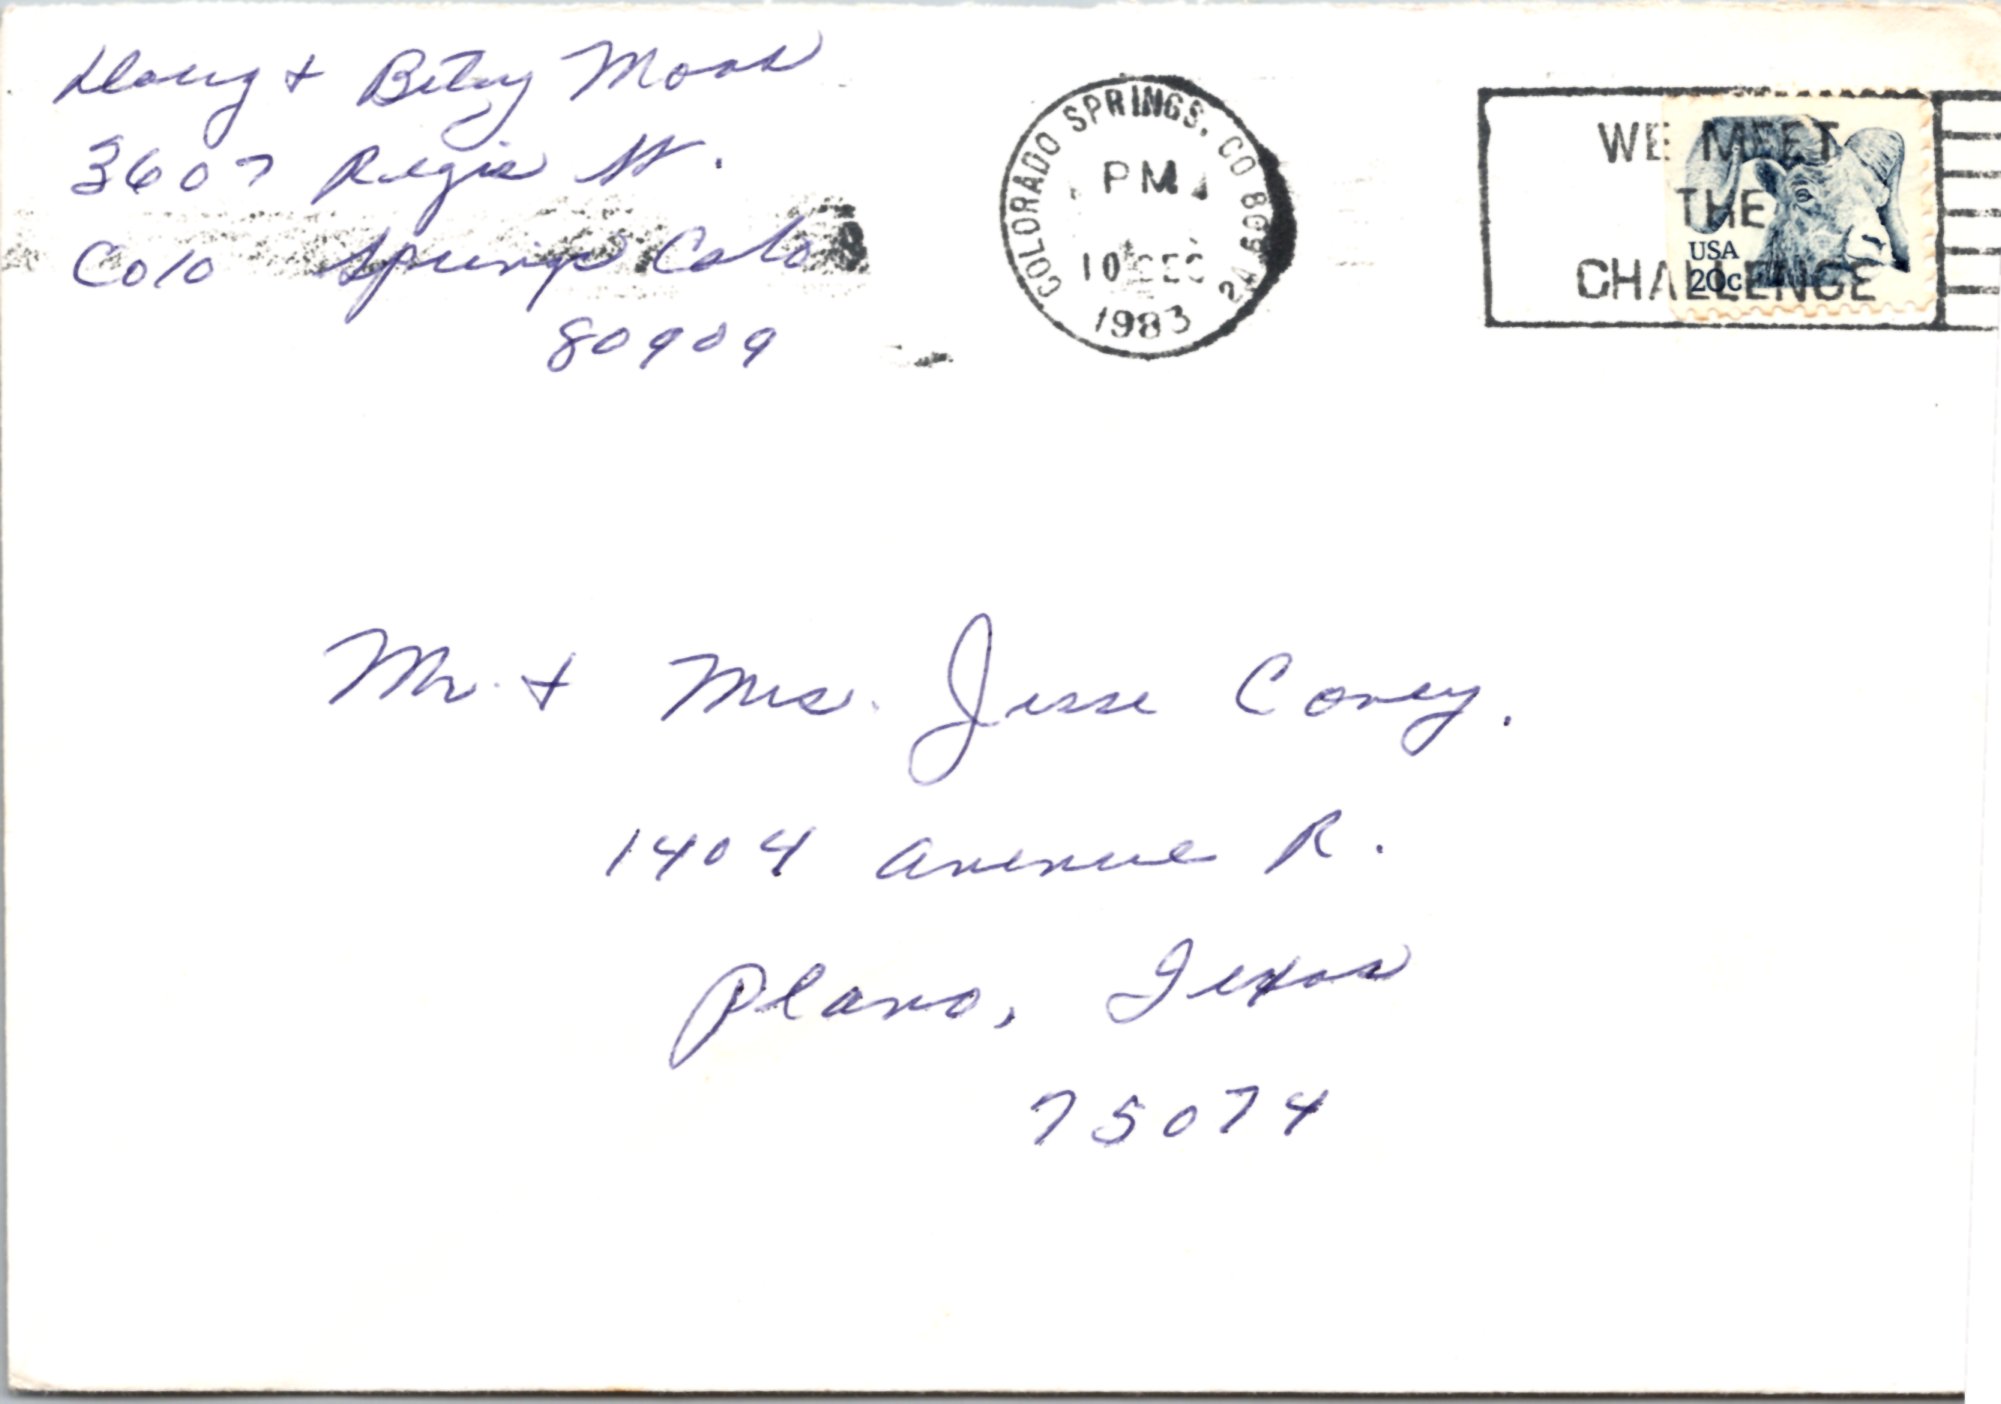 Doug + Betsy Moas
3607 Regis St.
Colo Springs Colo
80909
COLORADO SPRINGS, CO 809
PM
10 DEC
1983
WE MEET
THE
CHALLENGE
USA
20c
Mr. + Mrs. Jesse Covey.
1404 Avenue R.
Plano, Texas
75074